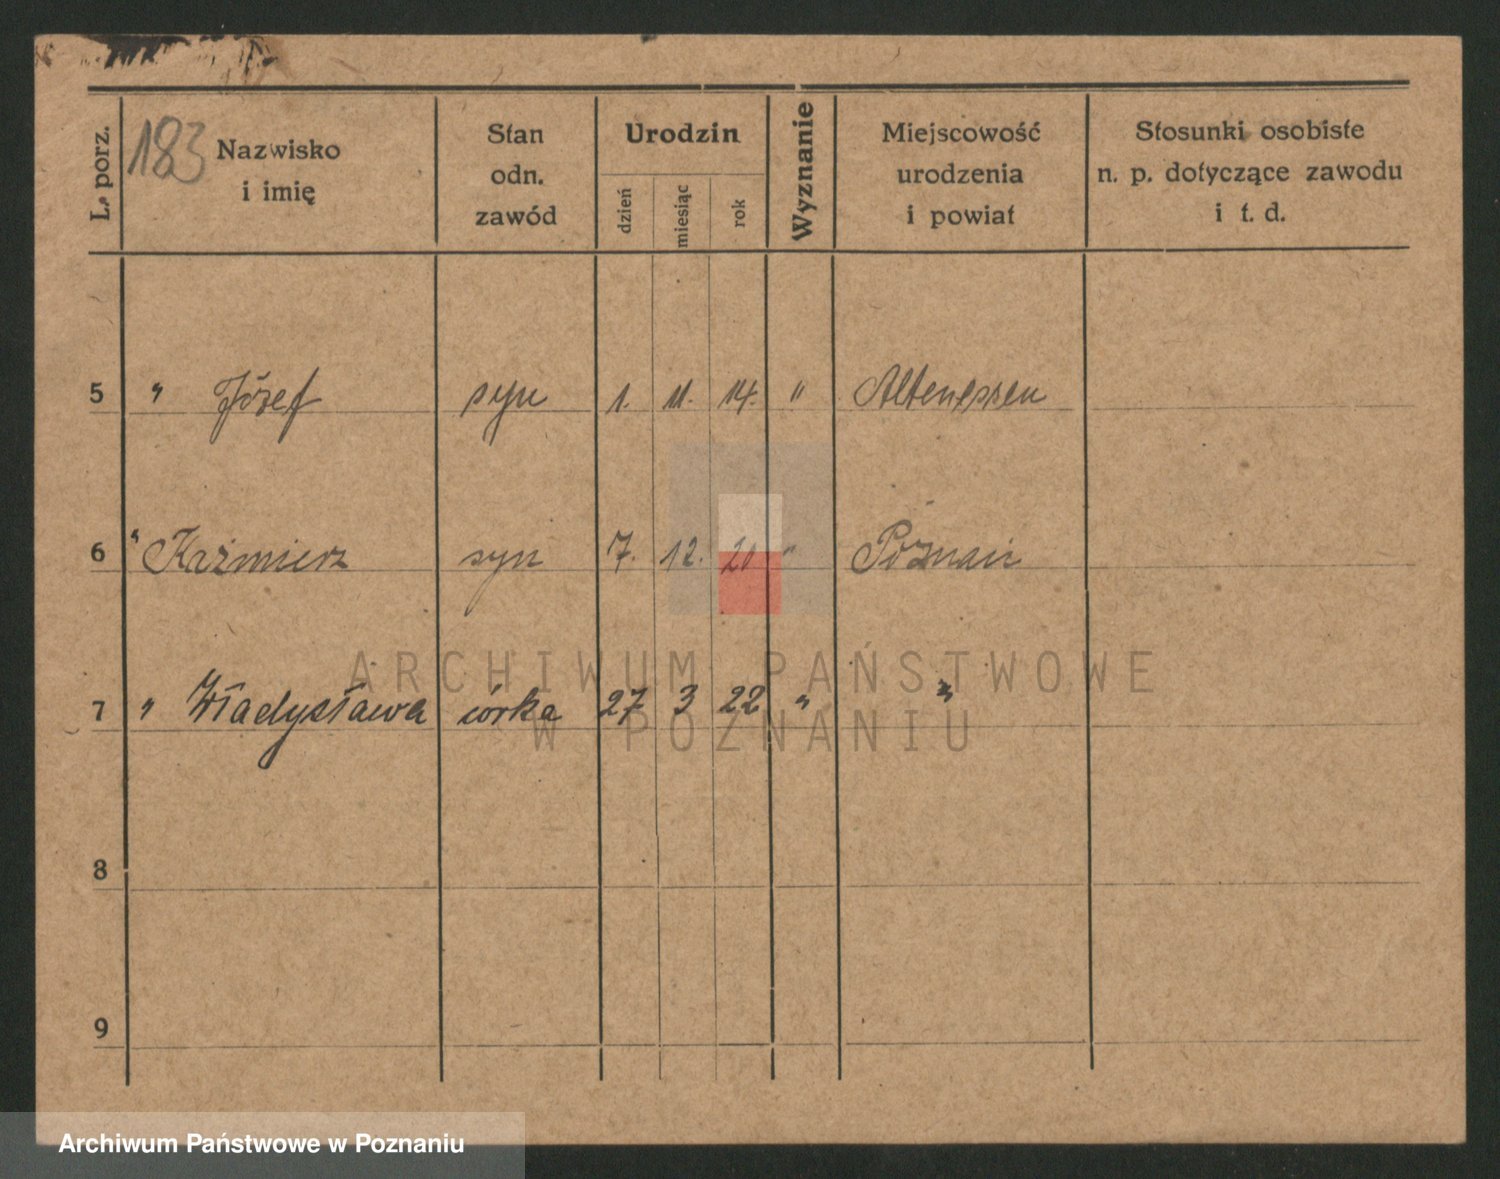 183
L. porz.
Nazwisko
i imię
Stan
odn.
zawód
Urodzin
dzień
miesiąc
rok
Wyznanie
Miejscowość
urodzenia
i powiat
Stosunki osobiste
n. p. dotyczące zawodu
i t. d.
5 " Józef syn 1. 11. 14. " Altenessen
6 " Kaźmierz syn 7. 12. 20 " Poznań
ARCHIWUM PAŃSTWOWE
W POZNANIU
7 " Władysława córka 27 3 22 " "
8
9
Archiwum Państwowe w Poznaniu